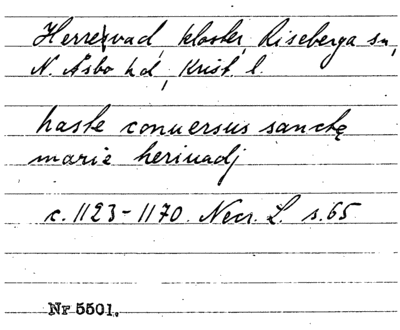 Herrevad, kloster, Riseberga sn,
N. Åsbo hd, Krist. l.
haste conuersus sanctę
marie heriuadj
c. 1123-1170. Necr. L. s. 65
Nr 5501.